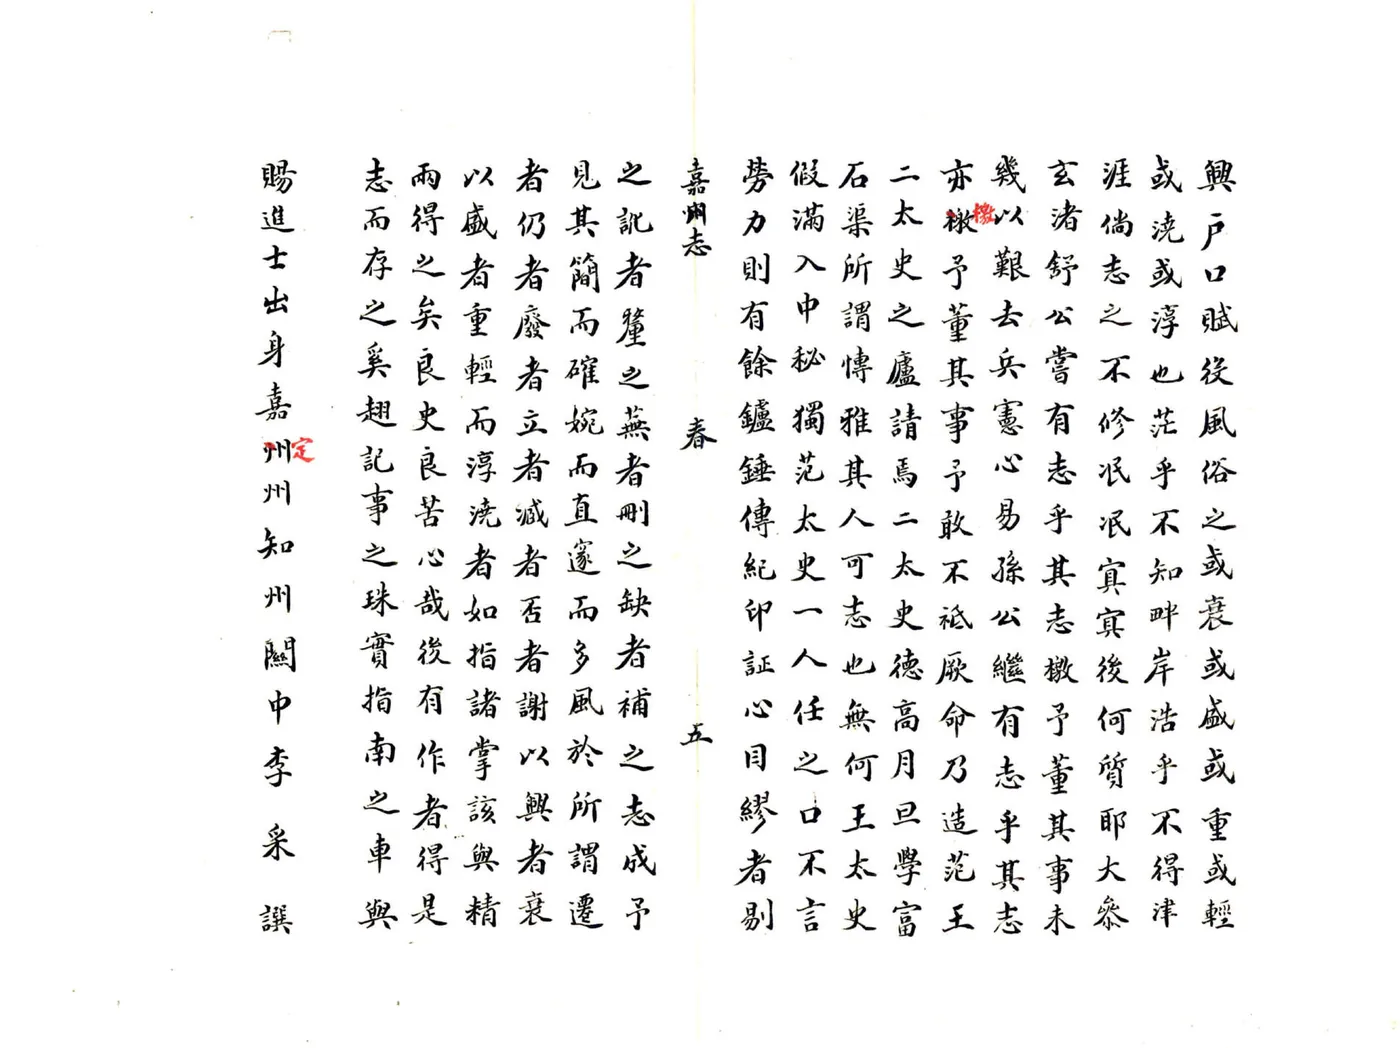 興戶口賦役風俗之或衰或盛或重或輕
或澆或淳也茫乎不知畔岸浩乎不得津
涯倘志之不修泯泯寘寘後何質耶大叅
玄渚舒公嘗有志乎其志檄予董其事未
幾以艱去兵憲心易孫公繼有志乎其志
亦檄予董其事予敢不祗厥命乃造范王
檄
二太史之廬請焉二太史德高月旦學富
石渠所謂慱雅其人可志也無何王太史
假滿入中秘獨范太史一人任之口不言
勞力則有餘鑪錘傳紀印証心目繆者剔
嘉州志 春 五
之訛者釐之蕪者刪之缺者補之志成予
見其簡而確婉而直邃而多風於所謂遷
者仍者廢者立者減者否者謝以興者衰
以盛者重輕而淳澆者如指諸掌該與精
兩得之矣良史良苦心哉後有作者得是
志而存之奚翅記事之珠實指南之車與
賜進士出身嘉州州知州關中李采譔
定